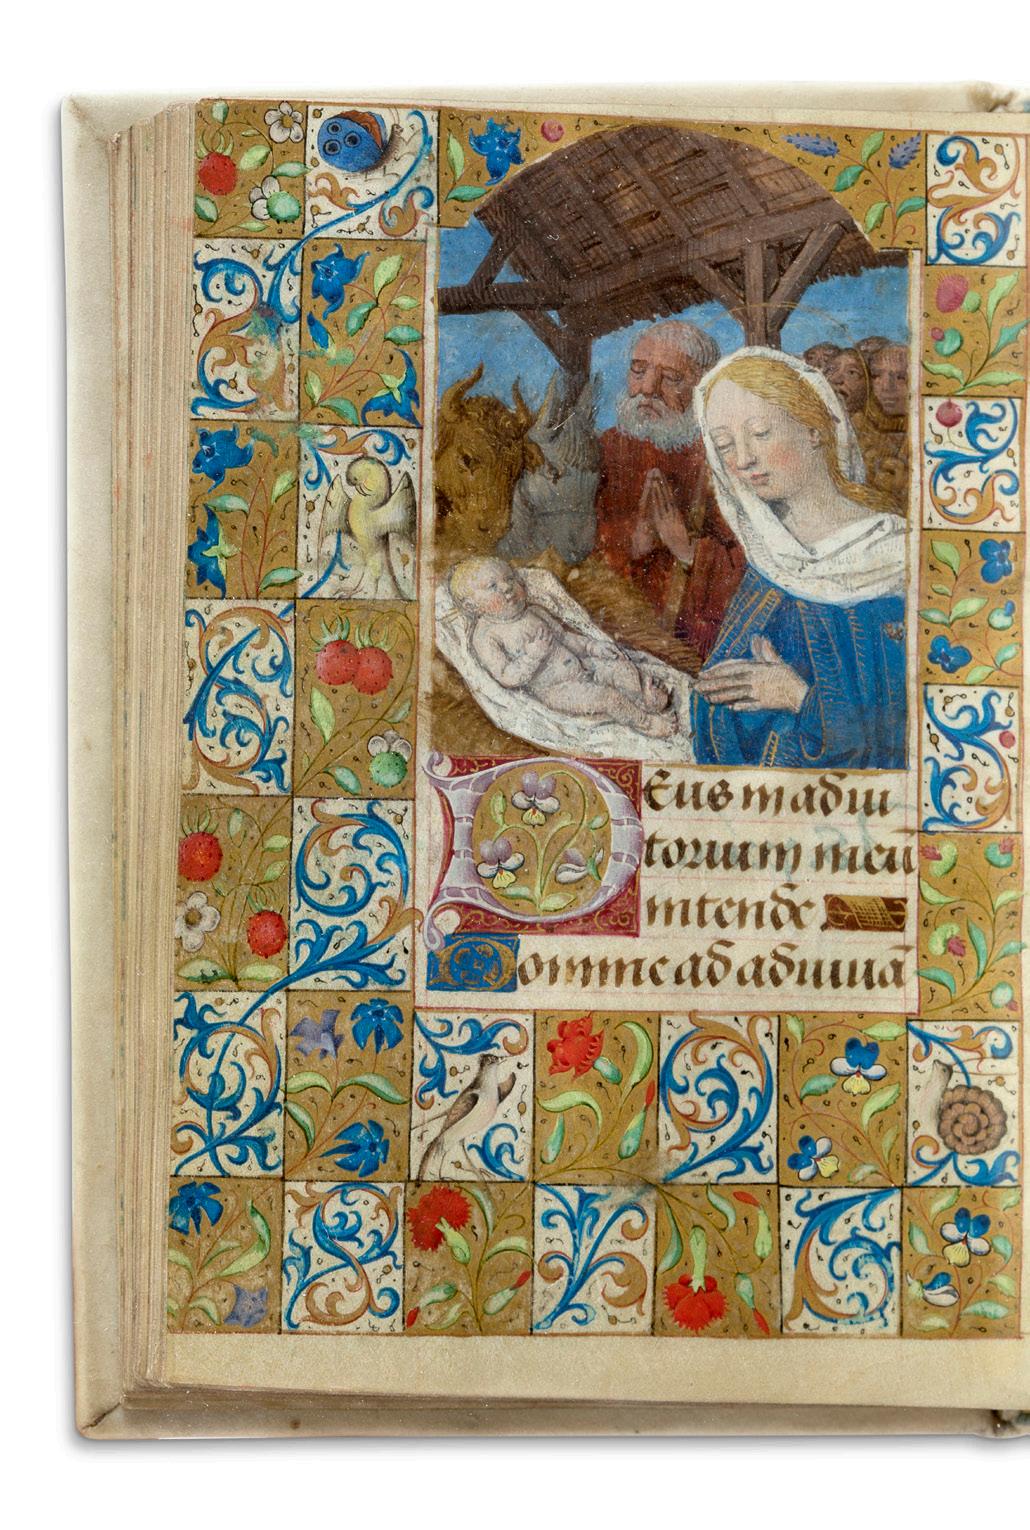 Deus in adiu
torium meū
intende
Domine ad adiuuā